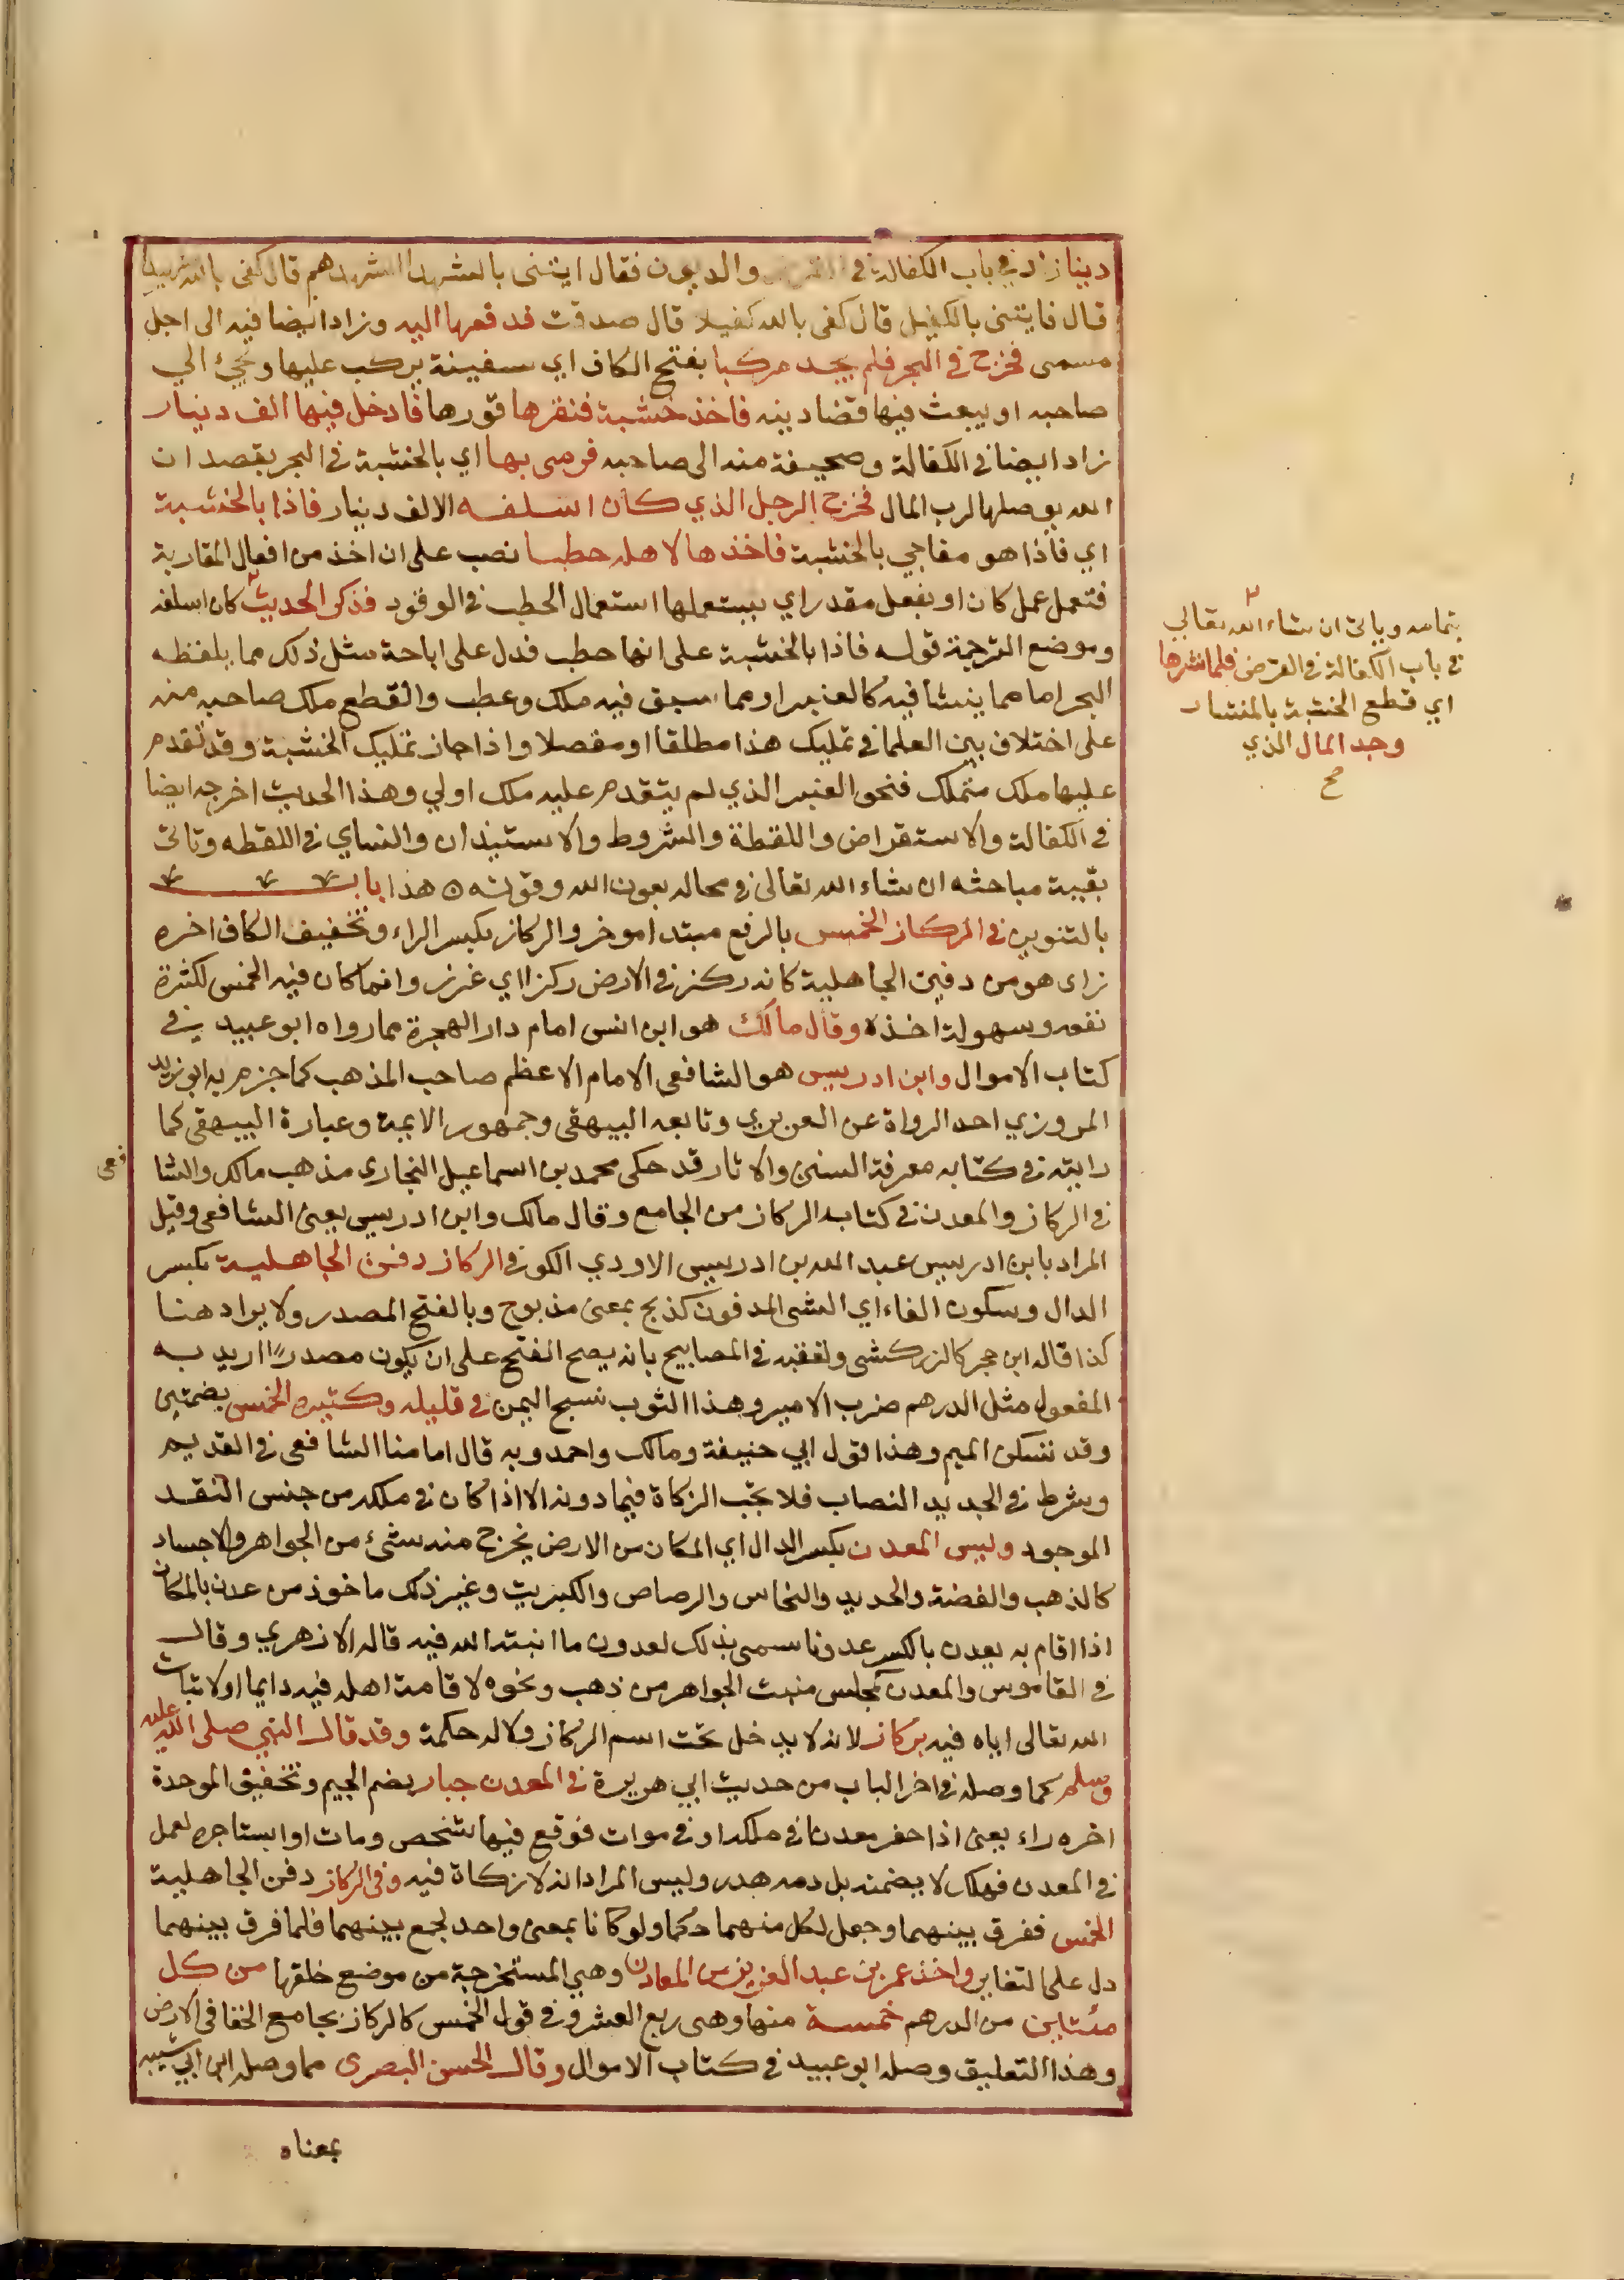 دينا زاد في باب الكفالة في القرض والديون فقال ايتنى بالشهدا اشهدهم قال كفى بالله شهيدا
قال فايتنى بالكفيل قال كفى بالله كفيلا قال صدقت فدفعها اليه وزاد ايضا فيه الى اجل
مسمى فخرج في البحر فلم يجد مركبا بفتح الكاف اي سفينة يركب عليها ويجيء الي
صاحبه او يبعث فيها قضا دينه فاخذ خشبة فنقرها قورها فادخل فيها الف دينار
زاد ايضا في الكفالة وصحيفة منه الى صاحبه فرمى بها اي بالخشبة في البحر بقصد ان
الله يوصلها لرب المال فخرج الرجل الذي كان اسلفه الالف دينار فاذا بالخشبة
اي فاذا هو مفاجي بالخشبة فاخذها لاهله حطبا نصب على ان اخذ من افعال المقاربة
فتعمل عمل كان او بفعل مقدر اي يستعملها استعمال الحطب في الوقود فذكر الحديث كان اسلفه
وموضع الترجمة قوله فاذا بالخشبة على انها حطب فدل على اباحة مثل ذلك مما يلفظه
البحر اما مما ينشا فيه كالعنبر او مما سبق فيه ملك وعطب والقطع ملك صاحبه منه
على اختلاف بين العلما في تمليك هذا مطلقا او مفصلا واذا جاز تمليك الخشبة وقد تقدم
عليها ملك متملك فنحو العنبر الذي لم يتقدم عليه ملك اولي وهذا الحديث اخرجه ايضا
في الكفالة والاستقراض واللقطة والشروط والاستيذان والنساي في اللقطه وتاتى
بقيبة مباحثه ان شاء الله تعالى في محاله بعون الله وقوته ه هذا باب
بالتنوين في الركاز الخمس بالرفع مبتدا موخر والركاز بكسر الراء وتخفيف الكاف اخره
زاى هو من دفين الجاهلية كانه ركز في الارض ركزا اي غرز وانما كان فيه الخمس لكثرة
نفعه وسهولة اخذه وقال مالك هو ابن انس امام دار الهجرة مما رواه ابو عبيد في
كتاب الاموال وابن ادريس هو الشافعى الامام الاعظم صاحب المذهب كما جزم به ابو زيد
المروزي احد الرواة عن الفربري وتابعه البيهقى وجمهور الايمة وعبارة البيهقى كما
رايته في كتابه معرفة السنن والاثار قد حكى محمد بن اسماعيل البخاري مذهب مالك والشا
فعى
في الركاز والمعدن في كتاب الركاز من الجامع وقال مالك وابن ادريس يعنى الشافعى وقيل
المراد بابن ادريس عبد الله بن ادريس الاودي الكوفي الركاز دفن الجاهلية بكسر
الدال وسكون الفاء اي الشى المدفون كذبح بمعنى مذبوح وبالفتح المصدر ولا يراد هنا
كذا قاله ابن حجر كالزركشى وتعقبه في المصابيح بانه يصح الفتح على ان يكون مصدرًا اريد به
المفعول مثل الدرهم ضرب الامير وهذا الثوب نسج اليمن في قليله وكثيره الخمس بضمتين
وقد تسكن الميم وهذا قول ابي حنيفة ومالك واحمد وبه قال امامنا الشافعى في القديم
وشرط في الجديد النصاب فلا تجب الزكاة فيما دونه الا اذا كان في ملكه من جنس النقد
الموجود وليس المعدن بكسر الدال اي المكان من الارض يخرج منه شيء من الجواهر والاجساد
كالذهب والفضة والحديد والنحاس والرصاص والكبريت وغير ذلك ماخوذ من عدن بالمكان
اذا اقام به يعدن بالكسر عدونا سمى بذلك لعدون ما انبته الله فيه قاله الازهري وقال
في القاموس والمعدن كمجلس منبت الجواهر من ذهب ونحوه لاقامة اهله فيه دايما اولاثبات
الله تعالى اياه فيه بركاز لانه لا يدخل تحت اسم الركاز ولا له حكمه وقد قال النبي صلى الله عليه
وسلم كما وصله في اخر الباب من حديث ابي هريرة في المعدن جبار بضم الجيم وتخفيف الموحدة
اخره راء يعنى اذا حفر معدنا في ملكه او في موات فوقع فيها شخص ومات او استاجره لعمل
في المعدن فهلك لا يضمنه بل دمه هدر وليس المراد انه لا زكاة فيه وفي الركاز دفن الجاهلية
الخمس ففرق بينهما وجعل لكل منهما حكما ولو كانا بمعنى واحد لجمع بينهما فلما فرق بينهما
دل على التغاير واخذ عمر بن عبد العزيز من المعادن وهي المستخرجة من موضع خلقها من كل
مئتاين من الدرهم خمسة منها وهى ربع العشر وفي قول الخمس كالركاز بجامع الخفا في الارض
وهذا التعليق وصله ابو عبيد في كتاب الاموال وقال الحسن البصرى مما وصله ابن ابي شيبه
بمعناه
بتمامه وياتى ان شاء الله تعالي
في باب الكفالة في القرض فلما نشرها
اي قطع الخشبة بالمنشار
وجد المال الذي
صح